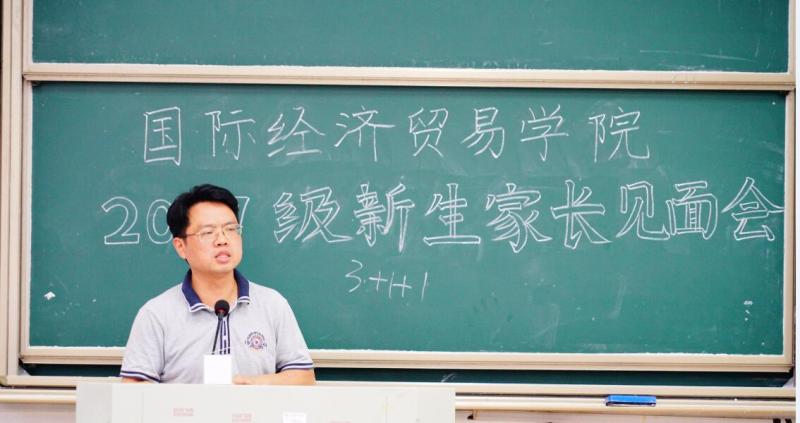 国际经济贸易学院
2017级新生家长见面会
3+1+1